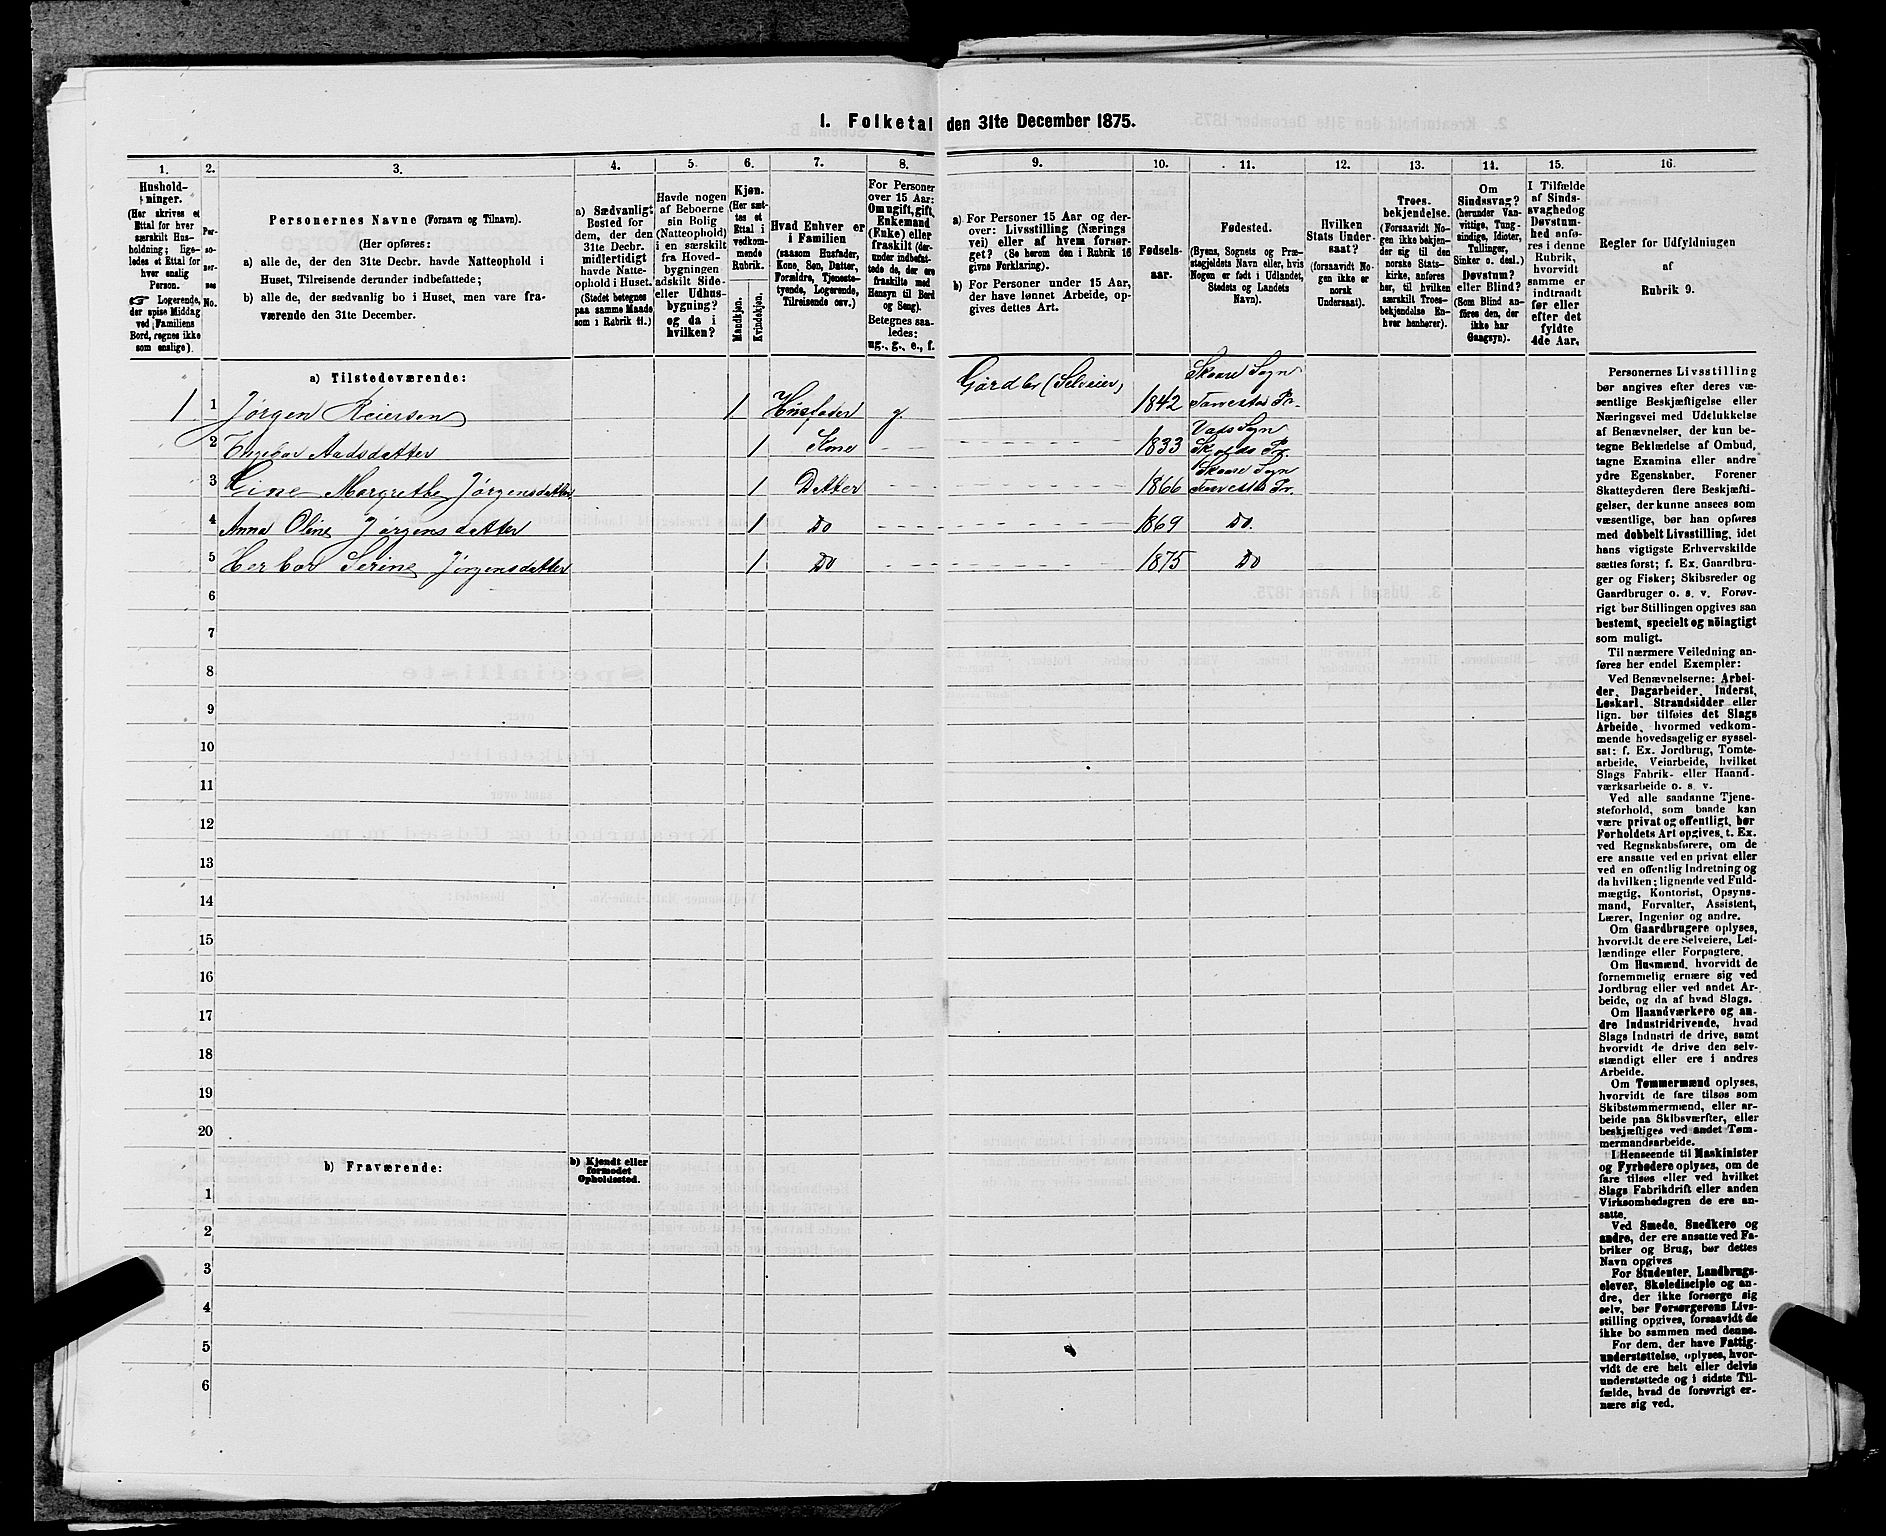 I. Folketal den 31te December 1875.
1.
2.
3.
4.
5.
6.
7.
8.
9.
10.
11.
12.
13.
14.
15.
16.
Hushold-
ninger.
(Her skrives et
Ettal for hver
særskilt Hus-
holdning; lige-
ledes et Ettal for
hver enslig
Person.
☞ Logerende,
der spise Middag
ved Familiens
Bord, regnes ikke
som enslige).
Per-
so-
ner-
nes
No.
Personernes Navne (Fornavn og Tilnavn).
(Her opføres:
a) alle de, der den 31te Decbr. havde Natteophold i
Huset, Tilreisende derunder indbefattede;
b) alle de, der sædvanlig bo i Huset, men vare fra-
værende den 31te December.
a) Sædvanligt
Bosted for
dem, der den
31te Decbr.
midlertidigt
havde Natte-
ophold i Huset.
(Stedet betegnes
paa samme Maade
som i Rubrik 11.)
Havde nogen
af Beboerne
sin Bolig
(Natteophold)
i en særskilt
fra Hoved-
bygningen
adskilt Side-
eller Udhus-
bygning?
og da i
hvilken?
Kjøn.
(Her sæt-
tes et
Ettal i
vedkom-
mende
Rubrik.
Mandkjøn.
Kvindekjøn.
Hvad Enhver er
i Familien
(saasom Husfader,
Kone, Søn, Datter,
Forældre, Tjeneste-
tyende, Logerende,
Tilreisende osv.)
For Personer
over 15 Aar:
Om ugift, gift,
Enkemand
(Enke) eller
fraskilt (der-
under indbefat-
tede de, der ere
fraskilte med
Hensyn til Bord
og Seng).
Betegnes saa-
ledes:
ug., g., e., f.
a) For Personer 15 Aar og der-
over: Livsstilling (Nærings
vei) eller af hvem forsør-
get? (Se herom den i Rubrik 16
givne Forklaring).
b) For Personer under 15 Aar,
der have lønnet Arbeide, op-
gives dettes Art.
Fødsels-
aar.
Fødested.
(Byens, Sognets og Præ-
stegjeldets Navn eller, hvis
Nogen er født i Udlandet,
Stedets og Landets
Navn).
Hvilken
Stats Under-
saat?
(forsaavidt No-
gen ikke er
norsk
Undersaat).
Troes-
bekjendelse.
(Forsaavidt No-
gen ikke bekjen-
der sig til den
norske Stats-
kirke, anføres
her, til hvilken
særskilt Troes-
bekjendelse En-
hver henhører).
Om
Sindssvag?
(herunder Van-
vittige, Tung-
sindige, Idioter,
Tullinger,
Sinker o. desl.)
Døvstum?
eller Blind?
(Som Blind an-
føres den, der
ikke har
Gangsyn).
I Tilfælde
af Sinds-
svaghed og
Døvstum-
hed anfø-
res i denne
Rubrik,
hvorvidt
samme er
indtraadt
før eller
efter det
fyldte
4de Aar.
Regler for Udfyldningen
af
Rubrik 9.
a) Tilstedeværende:
1 1 Jørgen Reiersen 1 Husfader g. Gårdbr (Selveier) 1842 Skaare Sogn
Torvestas Pr.
2 Ingebor Aadsdatter 1 Kone 1833 Vats Sogn
Skjolds Pr.
3 Line Margrethe Jørgensdatter 1 Datter 1866 Skaare Sogn
Torvestas Pr.
4 Anna Oline Jørgensdatter 1 Do 1869 Do.
5 Herbor Serine Jørgensdatter 1 Do 1875 Do
6
7
8
9
10
11
12
13
14
15
16
17
18
19
20
b) Fraværende:
b) Kjendt eller
formodet
Opholdssted.
1
2
3
4
5
6
Personernes Livsstilling
bør angives efter deres væ-
sentlige Beskjæftigelse eller
Næringsvei med Udelukkelse
af Benævnelser, der kun be-
tegne Beklædelse af Ombud,
tagne Examina eller andre
ydre Egenskaber. Forener
Skatteyderen flere Beskjæfti-
gelser, der kunne ansees som
væsentlige, bør han opføres
med dobbelt Livsstilling, idet
hans vigtigste Erhvervskilde
sættes først; f. Ex. Gaardbru-
ger og Fisker; Skibsreder og
Gaardbruger o. s. v. Forøv-
rigt bør Stillingen opgives saa
bestemt, specielt og nöiagtigt
som muligt.
Til nærmere Veiledning an-
føres her endel Exempler:
Ved Benævnelserne: Arbei-
der, Dagarbeider, Inderst,
Løskarl, Strandsidder eller
lign. bør tilføies det Slags
Arbeide, hvormed vedkom-
mende hovedsagelig er syssel-
sat: f. Ex. Jordbrug, Tomte-
arbeide, Veiarbeide, hvilket
Slags Fabrik- eller Haand-
værksarbeide o. s. v.
Ved alle saadanne Tjene-
steforhold, som baade kan
være privat og offentligt, bør
Forholdets Art opgives, t. Ex.
ved Regnskabsførere, om de
ere ansatte ved en privat eller
ved en offentlig Indretning og
da hvilken; lignende ved Fuld-
mægtig, Kontorist, Opsyns-
mand, Forvalter, Assistent,
Lærer, Ingeniør og andre.
Om Gaardbrugere oplyses,
hvorvidt de ere Selveiere, Lei-
lændinge eller Forpagtere.
Om Husmænd, hvorvidt de
fornemmelig ernære sig ved
Jordbrug eller ved andet Ar-
beide, og da af hvad Slags.
Om Haandværkere og an-
dre Industridrivende, hvad
Slags Industri de drive, samt
hvorvidt de drive den selv-
stændigt eller ere i andres
Arbeide.
Om Tømmermænd oplyses,
hvorvidt de fare tilsøs som
Skibstømmermænd, eller ar-
beide paa Skibsværfter, eller
beskjæftiges ved andet Tøm-
mermandsarbeide.
I Henseende til Maskinister
og Fyrbødere oplyses, om de
fare tilsøs eller ved hvilket
Slags Fabrikdrift eller anden
Virksomhedsgren de ere an-
satte.
Ved Smede, Snedkere og
andre, der ere ansatte ved Fa-
briker og Brug, bør dettes
Navn opgives
For Studenter, Landbrugs-
elever, Skoledisciple og an-
dre, der ikke forsørge sig
selv, bør Forsørgerens Livs-
stilling opgives, forsaavidt de
ikke bo sammen med denne.
For dem, der have Fattig-
understøttelse, oplyses, hvor-
vidt de ere helt eller delvis
understøttede og i sidste Til-
fælde, hvad de forøvrigt er-
nære sig ved.